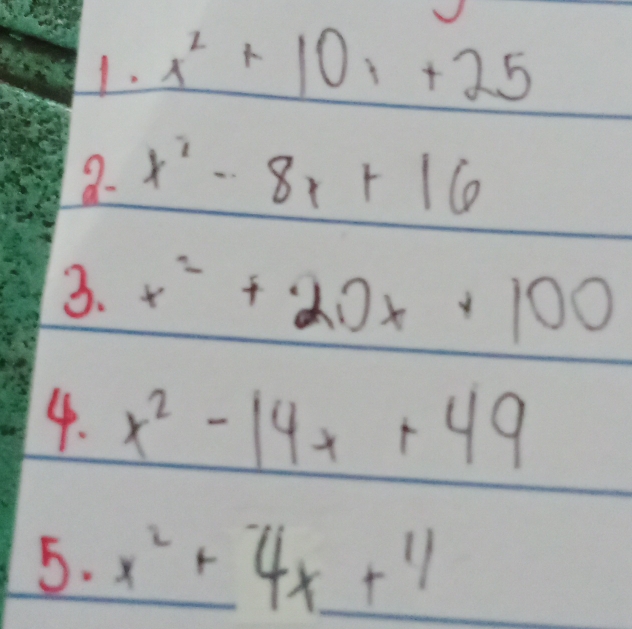 1. x² + 10x + 25
2. x² - 8x + 16
3. x² + 20x + 100
4. x² - 14x + 49
5. x² + 4x + 4